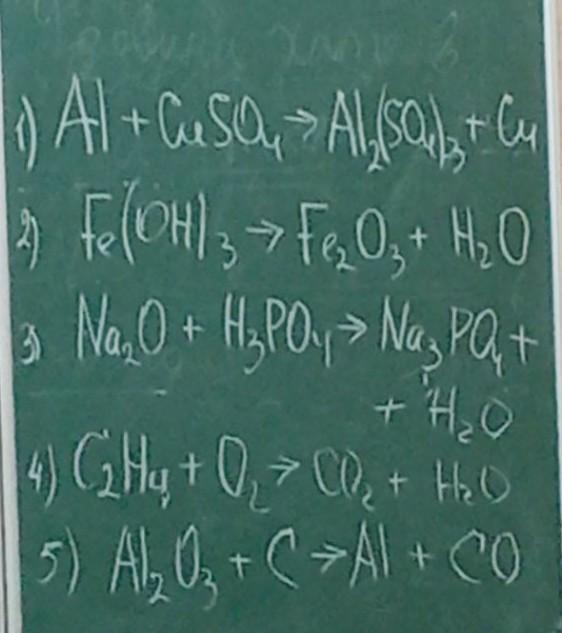 1) Al + CuSO₄ → Al₂(SO₄)₃ + Cu
2) Fe(OH)₃ → Fe₂O₃ + H₂O
3) Na₂O + H₃PO₄ → Na₃PO₄ +
+ H₂O
4) C₂H₄ + O₂ → CO₂ + H₂O
5) Al₂O₃ + C → Al + CO